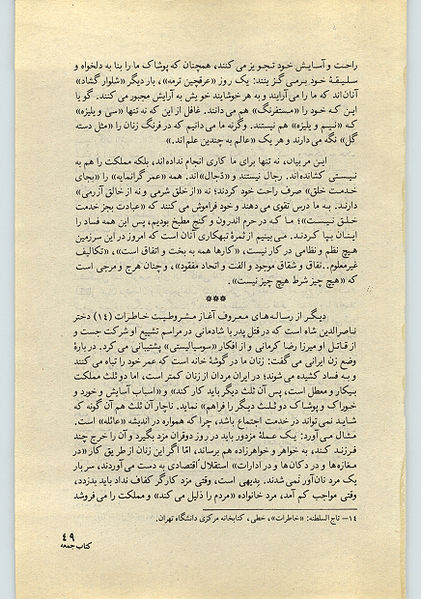 راحت و آسایش خود تجویز می کنند، همچنان که پوشاك ما را بنا به دلخواه و
سلیقهٔ خود برمی گزینند: یك روز «عرقچین ترمه»، بار دیگر «شلوار گشاد»
آنان اند که ما را می آرایند و به هر خوشایند خویش به آرایش مجبور می کنند. گویا
این که خود را «مستفرنگ» هم می دانند. غافل از این که نه تنها «سی و یلیزه»
که «نیم و یلیزه» هم نیستند. وگرنه ما می دانیم که در فرنگ زنان را «مثل دسته
گل» نگه می دارند و هر یك «عالم به چندین علم اند».
این مربیان، نه تنها برای ما کاری انجام نداده اند، بلکه مملکت را هم به
نیستی کشانده اند. رجال نیستند و «دجال»اند. همه «عمر گرانمایه» را «بجای
خدمت خلق» صرف راحت خود کردند؛ نه «از خلق شرمی و نه از خالق آزرمی»
دارند. به ما درس تقوی می دهند و خود فراموش می کنند که «عبادت بجز خدمت
خلق نیست»؛ ما که در حرم اندرون و کنج مطبخ بودیم، پس این همه فساد را
اینان بپا کردند. می بینیم از ثمرهٔ تبهکاری آنان است که امروز در این سرزمین
هیچ نظم و نظامی در کار نیست، «کارها همه به بخت و اتفاق است»، «تکالیف
غیرمعلوم، نفاق و شقاق موجود و الفت و اتحاد مفقود»، و چنان هرج و مرجی است
که «هیچ چیز شرط هیچ چیز نیست».
***
دیگر از رساله های معروف آغاز مشروطیت خاطرات (۱۴) دختر
ناصرالدین شاه است که در قتل پدر با شادمانی در مراسم تشییع او شرکت جست و
از قاتل او میرزا رضا کرمانی و از افکار «سوسیالیستی» پشتیبانی می کرد. در بارهٔ
وضع زن ایرانی می گفت: زنان ما در گوشهٔ خانه است که عمر خود را تباه می کنند
و به فساد کشیده می شوند؛ در ایران مردان از زنان کمتر است، اما دو ثلث مملکت
بیکار و معطل است، پس آن ثلث دیگر باید کار کند» و «اسباب آسایش و خورد و
خوراك و پوشاك دو ثلث دیگر را فراهم» نماید. ناچار آن ثلث هم آن گونه که
شاید نمی تواند در خدمت اجتماع باشد، چرا که همواره در اندیشه «عائله» است.
مثال می آورد: یك عملهٔ مزدور باید در روز دوقران مزد بگیرد و آن را خرج چند
فرزند کند، به خواهر و خواهرزاده هم برساند، امّا اگر این زنان از طریق کار «در
مغازه ها و در دکان ها و در ادارات» استقلال اقتصادی به دست می آوردند، سر بار
یك مرد نان آور نمی شدند. بدیهی است، وقتی مزد کارگر کفاف نداد باید بدزدد،
وقتی مواجب کم آمد، مرد خانواده «مردم را ذلیل می کند» و مملکت را می فروشد
۱۴– تاج السلطنه: «خاطرات»، خطی، کتابخانه مرکزی دانشگاه تهران.
۴۹
کتاب جمعه